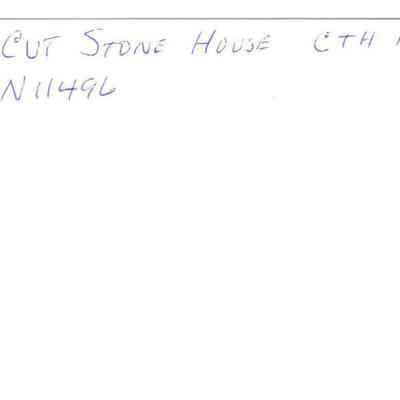 CUT STONE HOUSE CTH
N11496